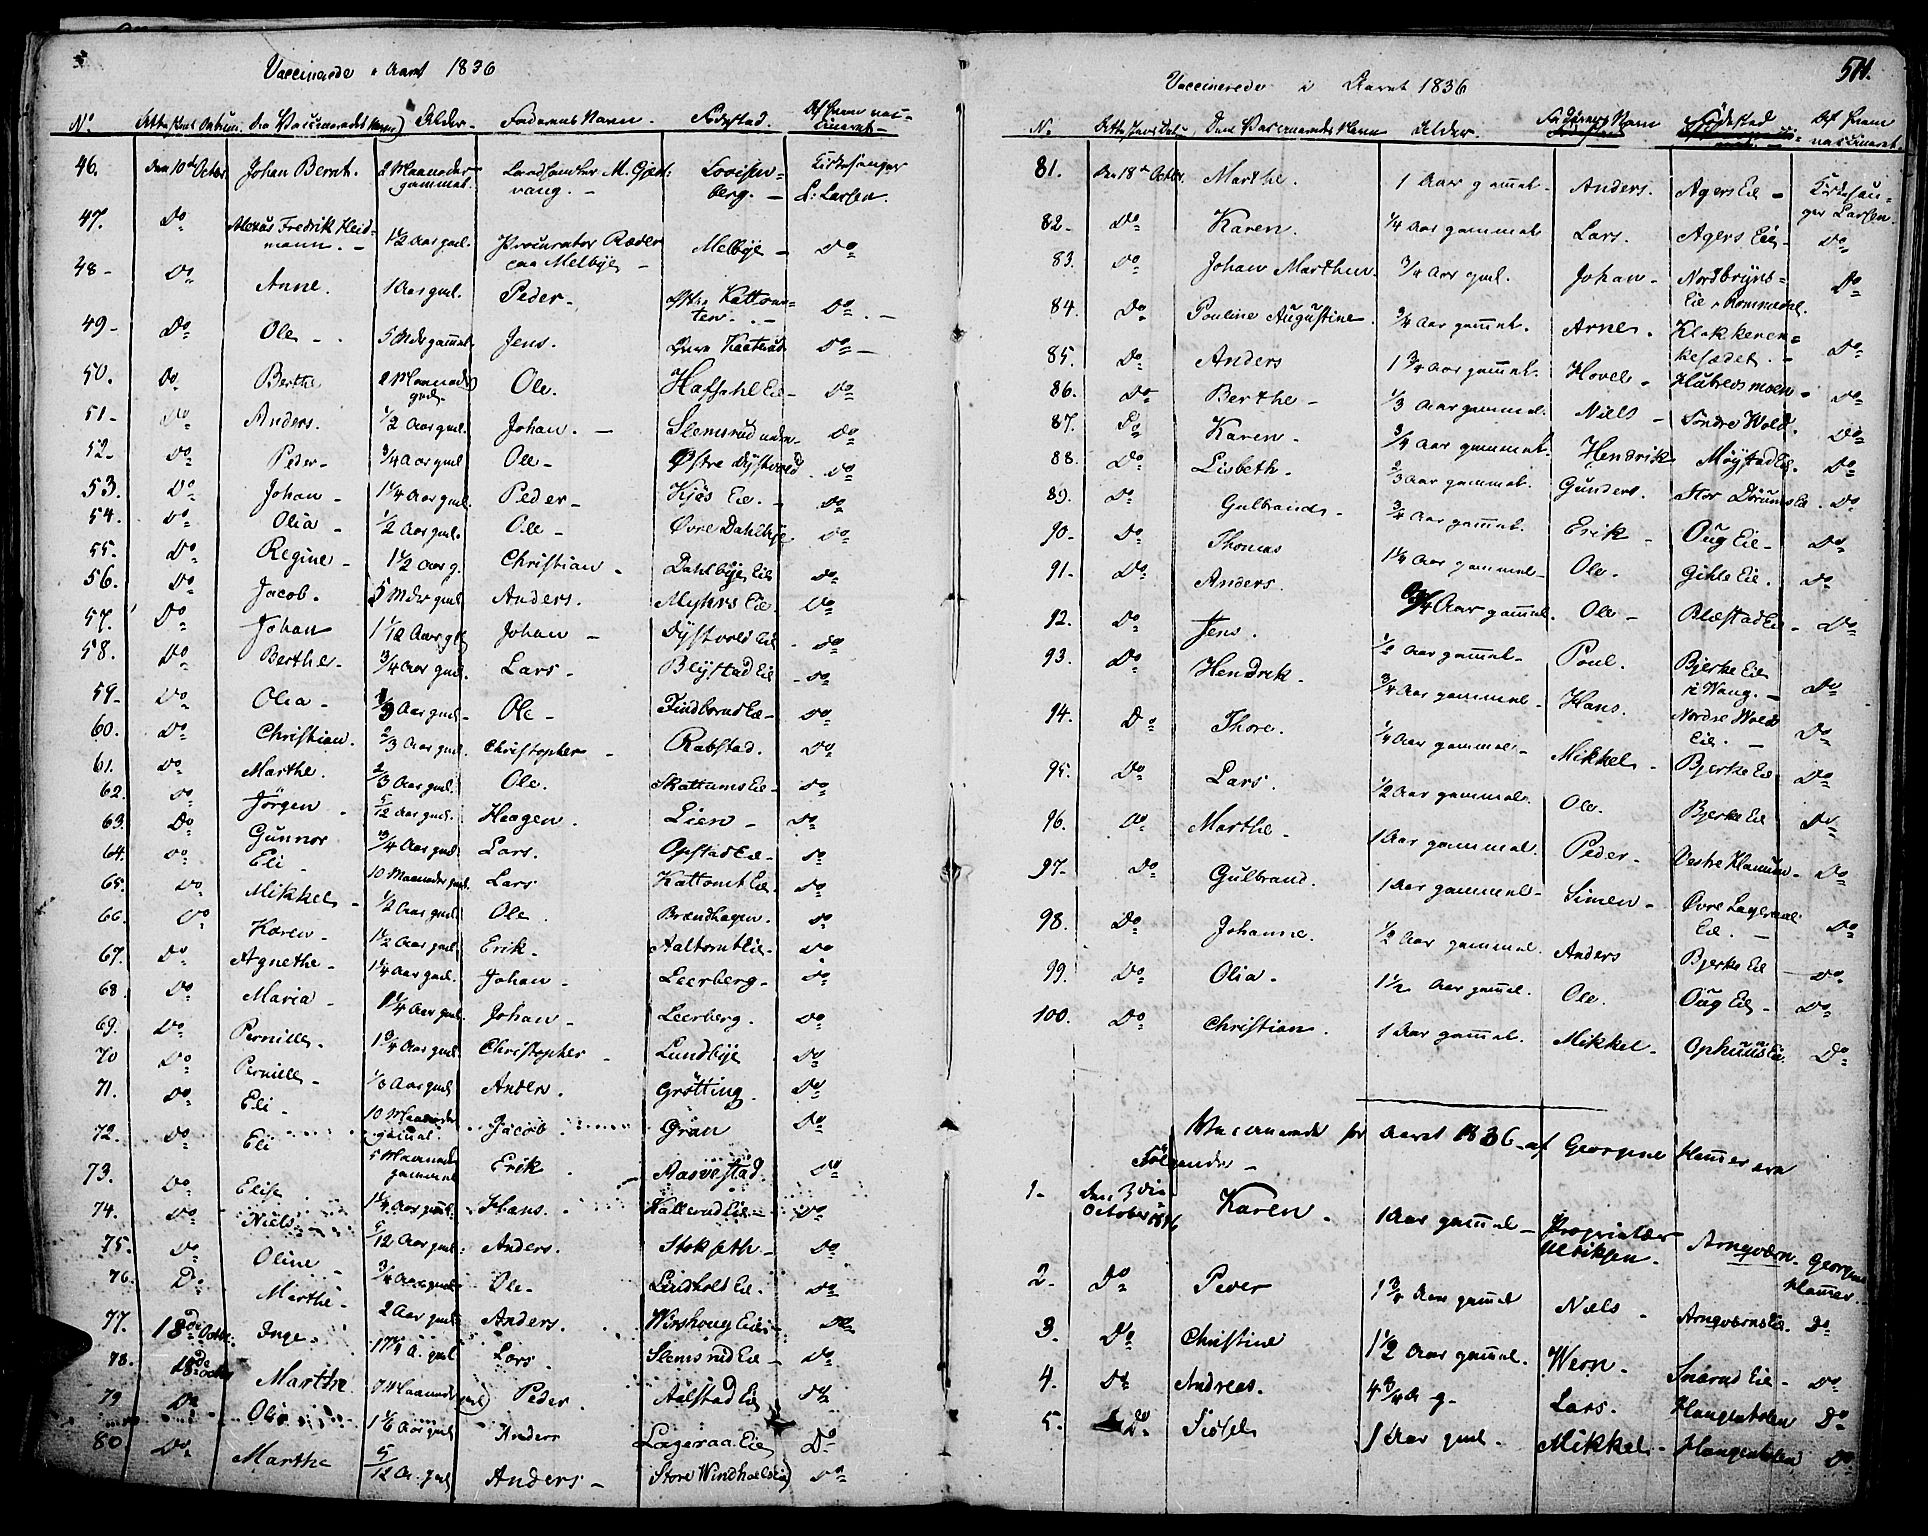 Vaccinerede i Aaret 1836
No. Attestens Datum. Den Vaccineredes Navn. Alder. Faderens Navn. Fødestad. Af hvem vaccineret.
46. Den 10de Octber Johan Bernt. 2 Maaneder gammel. M. Gjest: vang. - Lovisenberg. - Kirkesanger L: Larsen.
47. Do Fredrik Heidmann. - 1 1/2 Aar gml. Procurator Ræder paa Melbye - Melbye - Do
48 - Do Anne. 1 Aar gml. Peder - Do -
49 - Do Ole - 5 Mdr gammel Jens. Do -
50. Do Berthe 2 Maaneder gml. Ole. Hafsahl Eie - Do
51 - Do Anders. 1/2 Aar gml. Johan. - Slemsrud Do
52 - Do Peder - 3/4 Aar gml Ole - Østre Dystvold Do
53. Do Johan - 1 1/4 Aar gml Peder - Kjøs Eie. - Do
54. Do Olia - 1/2 Aar gml. Ole - Øvre Dahlbye Do
55. Do Regine - 1 1/2 Aar g. Christian - Dahlbye Eie Do
56. Do Jacob. 5 Mdr gml Anders. Myhrs Eie Do
57. Do Johan 1 1/12 Aar gl Johan - Dystvold Eie - Do
58. Do Berthe - 3/4 Aar gml. Lars - Blystad Eie - Do
59 - Do Olia - Aar gml - Ole - Do
60. Do Christian. 2/3 Aar gml. Christopher - Rabstad. Do
61. Do Marthe. 2/3 Aar gml. Ole. Skattums Eie - Do
62. Do Jørgen - 5/12 Aar gml. Haagen. Lien - Do
63. Do Gunnor 3/4 Aar gml. Lars. Opstad Eie - Do
64. Do Eli - 10 Maaneder gml. Lars Do
65. Do Mikkel - 1/2 Aar gml. Ole. Brændhagen. Do
66. Do Karen - 1 1/2 Aar gml. Erik. Do
67. Do Agnethe - 1 1/4 Aar gml. Johan - Leerberg - Do
68. Do Maria - 1 1/4 Aar gml. Johan - Leerberg. Do
69. Do Pernille - 1 3/4 Aar gml. Christopher - Lundbye Do
70 Do Pernille - 1/3 Aar gml. Anders. Grøtting Do
71. Do Eli - 10 Maaneder gammel. Jacob. Gran Do
72. Do Eli 5 Maaneder gammel Erik. Aasvestad. Do
73. Do Elise 1 1/4 Aar gml. Hans. Kallerud Eie - Do
74. Do Niels - 5/12 Aar gml. Anders. Stokseth - Do
75. Do Oline - 3/4 Aar gml. Ole - Lindholt Eie. Do
76. Do Marthe - 2 Aar gml. Anders. Do
77. 18de Octbr. Inge - A. gml Lars. Slemsrud Eie - Do
78. 18de Octbr Marthe 7 Maaneder gml Peder. Aalstad Eie Do
79 Do Olia 1 1/6 Aar gml. Anders Lageraa Eie Do
80. Do Marthe 5/12 A. gml Anders - Store Do
Vaccinerede i Aaret 1836
511.
No. Den Vaccineredes Navn Alder. Faderens Navn Fødestad Af hvem vaccineret.
81. Den 18de Octbr. Marthe. 1 Aar gammel - Anders. Agers Eie - Kirkesanger Larsen.
82 - Do Karen. 1/4 Aar gammel Lars. Agers Eie - Do
83. Do Johan Marthin. 3/4 Aar gml. Johan - Nordbryns - Eie i Rommedal. Do
84. Do Pouline Augustine. 3/4 Aar gammel. Arne. Klokkerenkesædet. - Do
85. Do Anders 1 3/4 Aar gammel. Hovel - Hubredsmoen - Do
86. Do Berthe - 1/3 Aar gammel. Niels - Søndre Wold. Do
87. Do Karen - 3/4 Aar gammel. Hendrik Møystad Eie. Do
88. Do Lisbeth. 2/3 Aar gammel. Gunder. Stor Do
89. Do Gulbrand - 3/4 Aar gammel. Erik - Oug Eie - Do
90. Do Thomas 1 1/4 Aar gammel - Ole. Gihle Eie. Do
91. Do Anders. 3/4 Aar gammel. Ole - Blæstad Eie - Do
92. Do Jens. 1/2 Aar gammel - Poul. Bjerke Eie i Wang. - Do
93. Do Hendrik - 3/4 Aar gammel - Hans. Nordre Wold Eie. - Do
94. Do Thore. 1/4 Aar gammel - Mikkel - Bjerke Eie Do
95. Do Lars. 1/2 Aar gammel. Ole. Bjerke Eie Do
96. Do Marthe - 1 Aar gammel. Peder - Vestre - Do
97 - Do Gulbrand. 1 Aar gammel - Simen - Øvre Lageraae Eie. - Do
98. Do Johanne. 1/2 Aar gammel Anders Bjerke Eie - Do
99. Do Olia - 1 1/2 Aar gammel. Ole. Oug Eie - Do
100. Do Christian. 1 Aar gammel. Mikkel - Ophuus Eie Do
Vaccinerede for Aaret 1836 - af Georgine Hammer ere
Følgende -
1 - Den 3die October 1836 Karen. 1 Aar gammel - Proprietær - Arneværn. Georgine Hammer.
2 - Do Peder 1 3/4 Aar gammel Niels - Arneværns Eie. Do
3. Do Christine 1 1/2 Aar gammel. Wern - Snærud Eie - Do
4. Do Andreas. 4 3/4 A g - Lars. Do
5. Do 1 Aar gml. Mikkel - Do